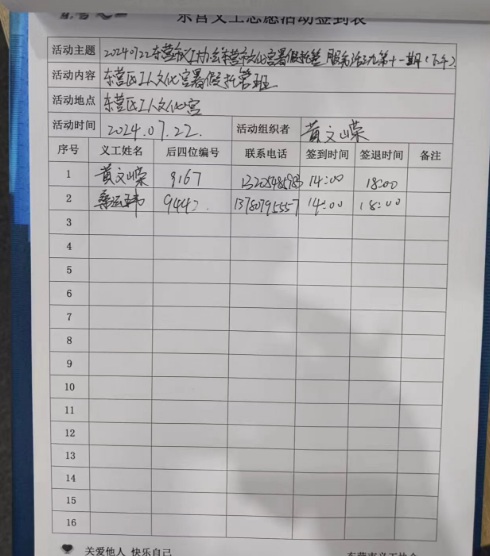 东营义工志愿活动签到表
活动主题 20240722东营市义工协会东营市文化宫暑假托管服务活动第十一期(下午)
活动内容 东营区工人文化宫暑假托管班
活动地点 东营区工人文化宫
活动时间 2024.07.22. 活动组织者 黄文山荣
序号 义工姓名 后四位编号 联系电话 签到时间 签退时间 备注
1 黄文山荣 9167 14:00 18:00
2 9442 13780795557 14:00 18:00
3
4
5
6
7
8
9
10
11
12
13
14
15
16
关爱他人 快乐自己 东营市义工协会